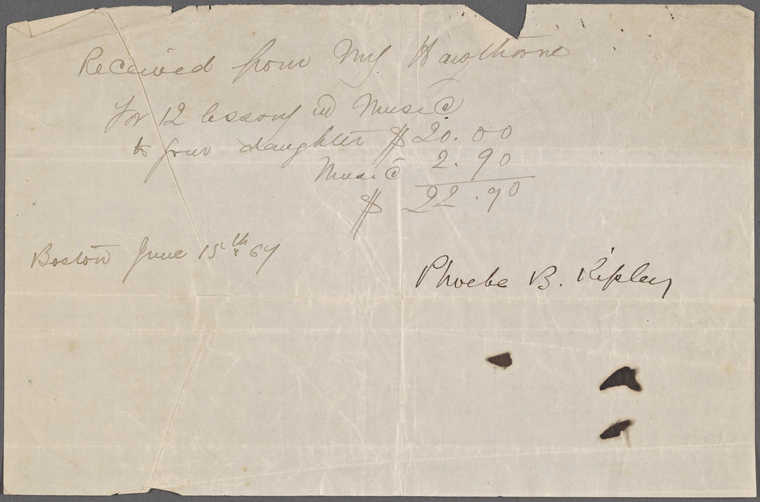 Received from Mrs Hawthorne
for 12 lessons in Music
to your daughter $20.00
Music 2.90
$22.90
Boston June 15th 67
Phoebe B. Ripley